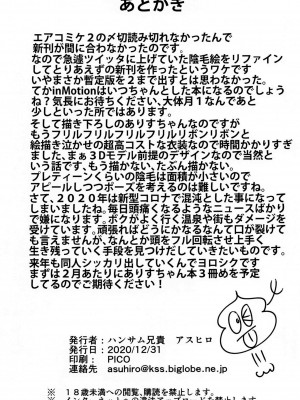 あとがき
エアコミケ２の〆切読み切れなかったんで
新刊が間に合わなかったのです。
なので急遽ツイッタに上げていた陰毛絵をリファイン
してとりあえずの新刊を作ったというワケです
いやまさか暫定版を２まで出すとは思わなかった。
てかinMotionはいつちゃんとした本になるのでしょう
ね？気長にお待ちください、大体月１なんであと
少しといった所ではあります。
そして描き下ろしのありすちゃんなのですが
もうフリルフリルフリルフリルリボンリボンと
絵描き泣かせの超高コストな衣装なので時間かかりすぎ
ました、まぁ３Dモデル前提のデザインなので当然と
いう話です、もう描かない、たぶん描かない。
プレティーンくらいの陰毛は面積が小さいので
アピールしつつポーズを考えるのは難しいですね。
さて、２０２０年は新型コロナで混沌とした事になって
しまいましたね。毎日頭痛くなるようなニュースばかり
で嫌になります。ボクがよく行く温泉や街もダメージを
受けています。頑張ればどうにかなるなんて口が裂けて
も言えませんが、なんとか頭をフル回転させ上手く
生き残っていく手段を見つけだしていきたいものです。
来年も同人シッカリ出していくんでヨロシクです
まずは２月あたりにありすちゃん本３冊めを予定
してるのでご期待ください！
発行者：ハンサム兄貴　アスヒロ
発行日：2020/12/31
印刷：PICO
連絡先　asuhiro@kss.biglobe.ne.jp
※　１８歳未満への閲覧、購読を禁します。